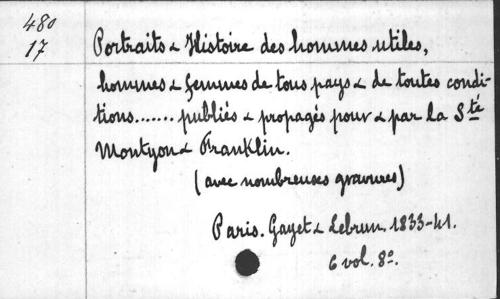 480
17
Portraits & Histoire des hommes utiles,
hommes & femmes de tous pays & de toutes condi-
tions....... publiés & propagés pour & par la Sté
Montyon & Franklin.
(avec nombreuses gravures)
Paris. Gayet & Lebrun. 1833-41.
6 vol. 8º.